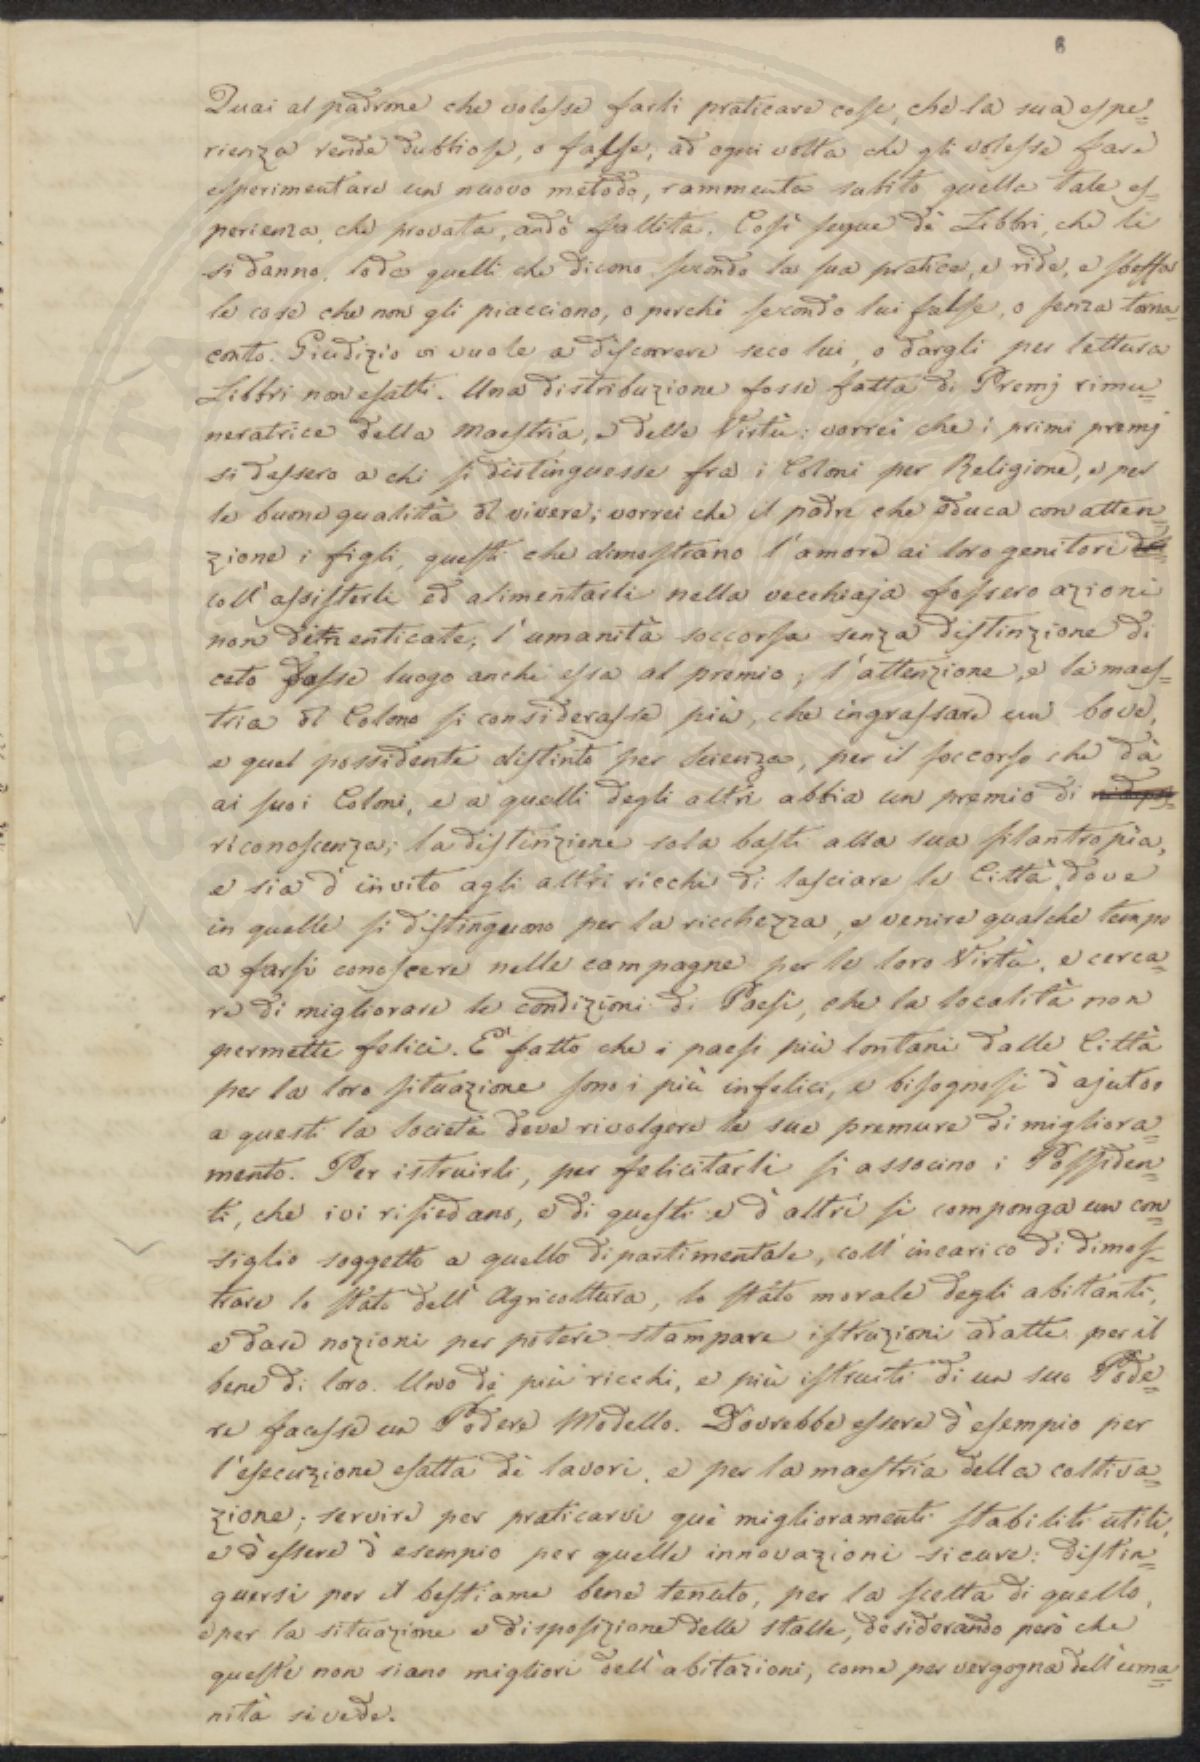 6
Quai al padrone che volesse farli praticare cose, che la sua espe=
rienza rende dubbiose, o false; ad ogni volta che gli volesse fare
esperimentare un nuovo metodo, rammenta subito quella tale es=
perienza, che provata, andò fallita. Così segue dè Libbri, che li
si danno, loda quelli che dicono secondo la sua pratica, e ride, e sbeffa
le cose che non gli piacciono, o perchè secondo lui false, o senza torna=
conto. Giudizio vi vuole a discorrere seco lui, o dargli per lettura
Libbri non esatti. Una distribuzione fosse fatta di Premj rimu=
neratrice della Maestria, e delle Virtù: vorrei che i primi premj
si dessero a chi si distinguesse fra i Coloni per Religione, e per
le buone qualità dl vivere; vorrei che il padre che educa con atten=
zione i figli, questi che dimostrano l'amore ai loro genitori
coll'assisterli ed alimentarli nella vecchiaja fossero azioni
non dimenticate; l'umanità soccorsa senza distinzione di
ceto fasse luogo anche essa al premio; l'attenzione, e la maes=
tria dl Colono si considerasse più, che ingrassare un bove,
e quel possidente distinto per Scienza, per il soccorso che dà
ai suoi Coloni, e a quelli degli altri abbia un premio di
riconoscenza; la distinzione sola basti alla sua filantropia,
e sia d'invito agli altri ricchi di lasciare le Città, dove
in quelle si distinguono per la ricchezza, e venire qualche tempo
a farsi conoscere nelle campagne per le loro Virtù, e cerca=
re di migliorare le condizioni di Paesi, che la località non
permette felici. E' fatto che i paesi più lontani dalle Città
per la loro situazione sono i più infelici, e bisognosi d'ajuto
a questi la Società deve rivolgere le sue premure di migliora=
mento. Per istruirli, per felicitarli si associno i Possiden=
ti, che ivi risiedano, e di questi e d'altri si componga un con=
siglio soggetto a quello dipartimentale, coll'incarico di dimos=
trare lo stato dell'Agricoltura, lo stato morale degli abitanti,
e dare nozioni per potere stampare istruzioni adatte per il
bene di loro. Uno dè più ricchi, e più istruiti di un suo Pode=
re facesse un Podere Modello. Dovrebbe essere d'esempio per
l'esecuzione esatta dè lavori, e per la maestria della coltiva=
zione; servire per praticarvi què miglioramenti stabiliti utili,
e d'essere d'esempio per quelle innovazioni sicure: distin=
guersi per il bestiame bene tenuto, per la scelta di quello,
e per la situazione e disposizione delle stalle, desiderando però che
queste non siano migliori dell'abitazioni, come per vergogna dell'uma=
nità si vede.